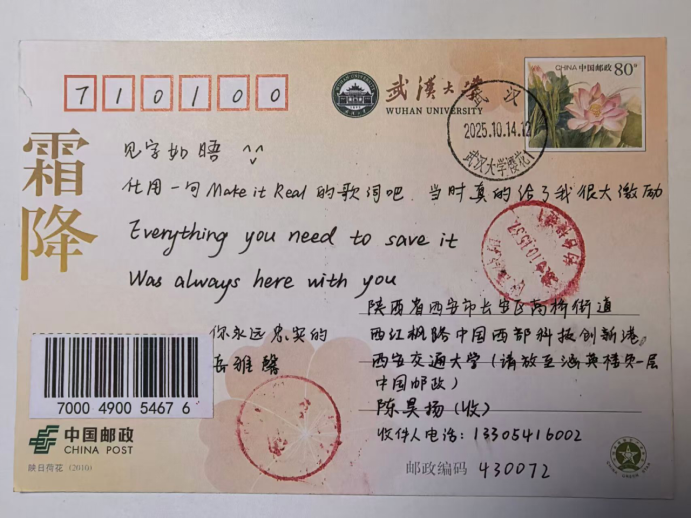 710100
武漢大學
WUHAN UNIVERSITY
CHINA 中国邮政 80分
武汉
2025.10.14.12
武汉大学樱花
霜降
见字如晤 ^^
化用一句 Make it Real 的歌词吧,当时真的给了我很大激励
Everything you need to save it
Was always here with you
你永远忠实的
雅馨
陕西省西安市长安区高桥街道
西江枫路中国西部科技创新港
西安交通大学(请放至涵英楼负一层
中国邮政)
陈昊扬(收)
收件人电话:13305416002
邮政编码 430072
7000 4900 5467 6
中国邮政
CHINA POST
映日荷花 (2010)